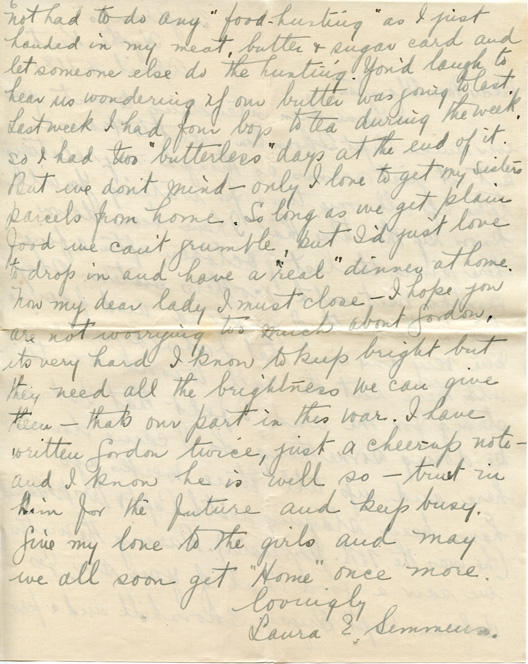 6
not had to do any "food-hunting" as I just
handed in my meat, butter & sugar card and
let someone else do the hunting. You'd laugh to
hear us wondering if our butter was going to last.
Last week I had four boys to tea during the week,
so I had two "butterless" days at the end of it.
But we don't mind - only I love to get my sisters
parcels from home. So long as we get plain
food we can't grumble, but I'd just love
to drop in and have a "real" dinner at home.
Now my dear lady I must close - I hope you
are not worrying too much about Gordon,
its very hard I know to keep bright but
they need all the brightness we can give
them - thats our part in this war. I have
written Gordon twice, just a cheerup note -
and I know he is well so - trust in
Him for the future and keep busy.
Give my love to the girls and may
we all soon get "Home" once more.
Lovingly
Laura E. Semmens.